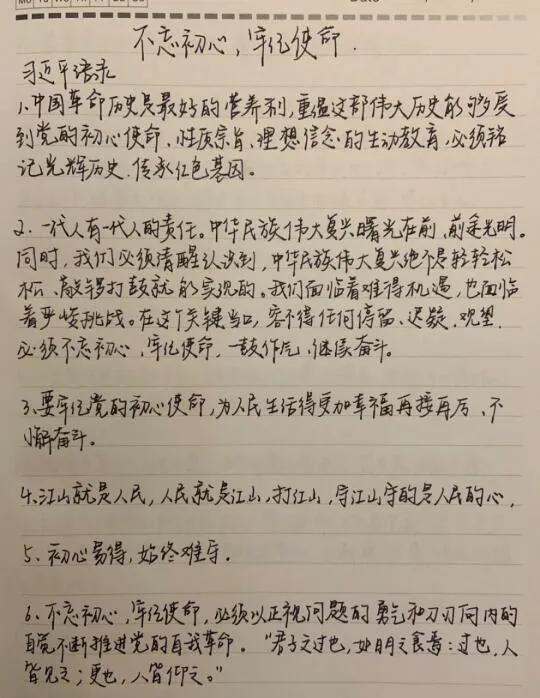 Mo Tu We Th Fr Sa Su Date
不忘初心，牢记使命.
习近平语录
1.中国革命历史是最好的营养剂，重温这部伟大历史能够受
到党的初心使命、性质宗旨、理想信念的生动教育，必须铭
记光辉历史、传承红色基因。
2、一代人有一代人的责任。中华民族伟大复兴曙光在前、前途光明。
同时，我们必须清醒认识到，中华民族伟大复兴绝不是轻轻松
松、敲锣打鼓就能实现的。我们面临着难得机遇，也面临
着严峻挑战。在这个关键当口，容不得任何停留、迟疑、观望，
必须不忘初心、牢记使命，一鼓作气，继续奋斗。
3、要牢记党的初心使命，为人民生活得更加幸福再接再厉、不
懈奋斗。
4、江山就是人民，人民就是江山，打江山，守江山守的是人民的心，
5、初心易得，始终难守。
6、不忘初心，牢记使命，必须以正视问题的勇气和刀刃向内的
自觉不断推进党的自我革命。“君子之过也，如日月之食焉：过也，人
皆见之；更也，人皆仰之。”